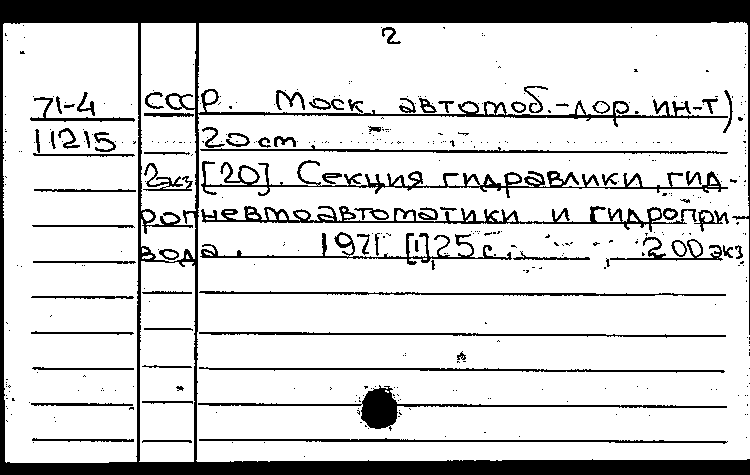 2
71-4 СССР. Моск. автомоб.-дор. ин-т).
11215 20 cm.
2экз [20]. Секция гидравлики, гид-
ропневмоавтоматики и гидропри-
вода. 1971. [1], 25 с. 200 экз